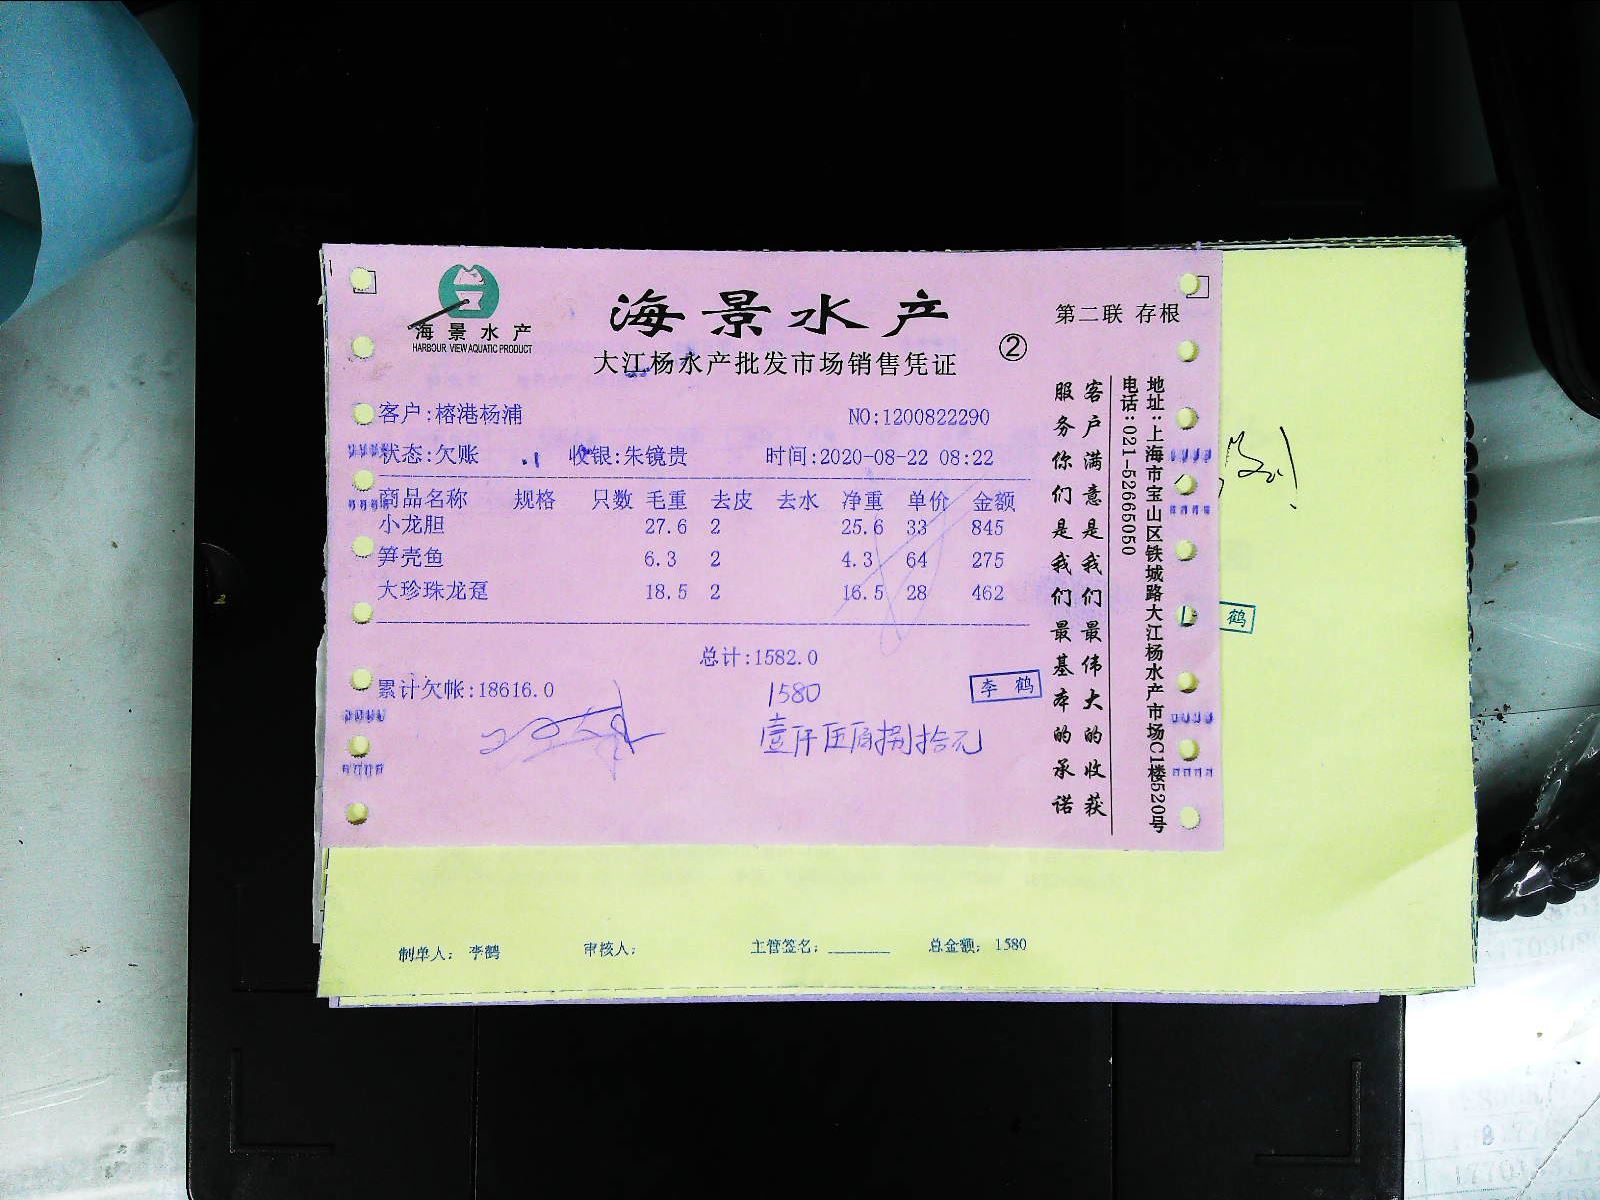 海景水产
HARBOUR VIEW AQUATIC PRODUCT
海景水产
大江杨水产批发市场销售凭证
②
第二联 存根
客户:榕港杨浦
NO:1200822290
状态:欠账 收银:朱镜贵 时间:2020-08-22 08:22
商品名称 规格 只数 毛重 去皮 去水 净重 单价 金额
小龙胆 27.6 2 25.6 33 845
笋壳鱼 6.3 2 4.3 64 275
大珍珠龙趸 18.5 2 16.5 28 462
总计:1582.0
累计欠帐:18616.0
1580
李鹤
壹仟伍佰捌拾元
客户满意是我们最伟大的收获
服务你们是我们最基本的承诺
地址:上海市宝山区铁城路大江杨水产市场C1楼520号
电话:021-52665050
鹤
制单人: 李鹤 审核人: 主管签名: 总金额: 1580